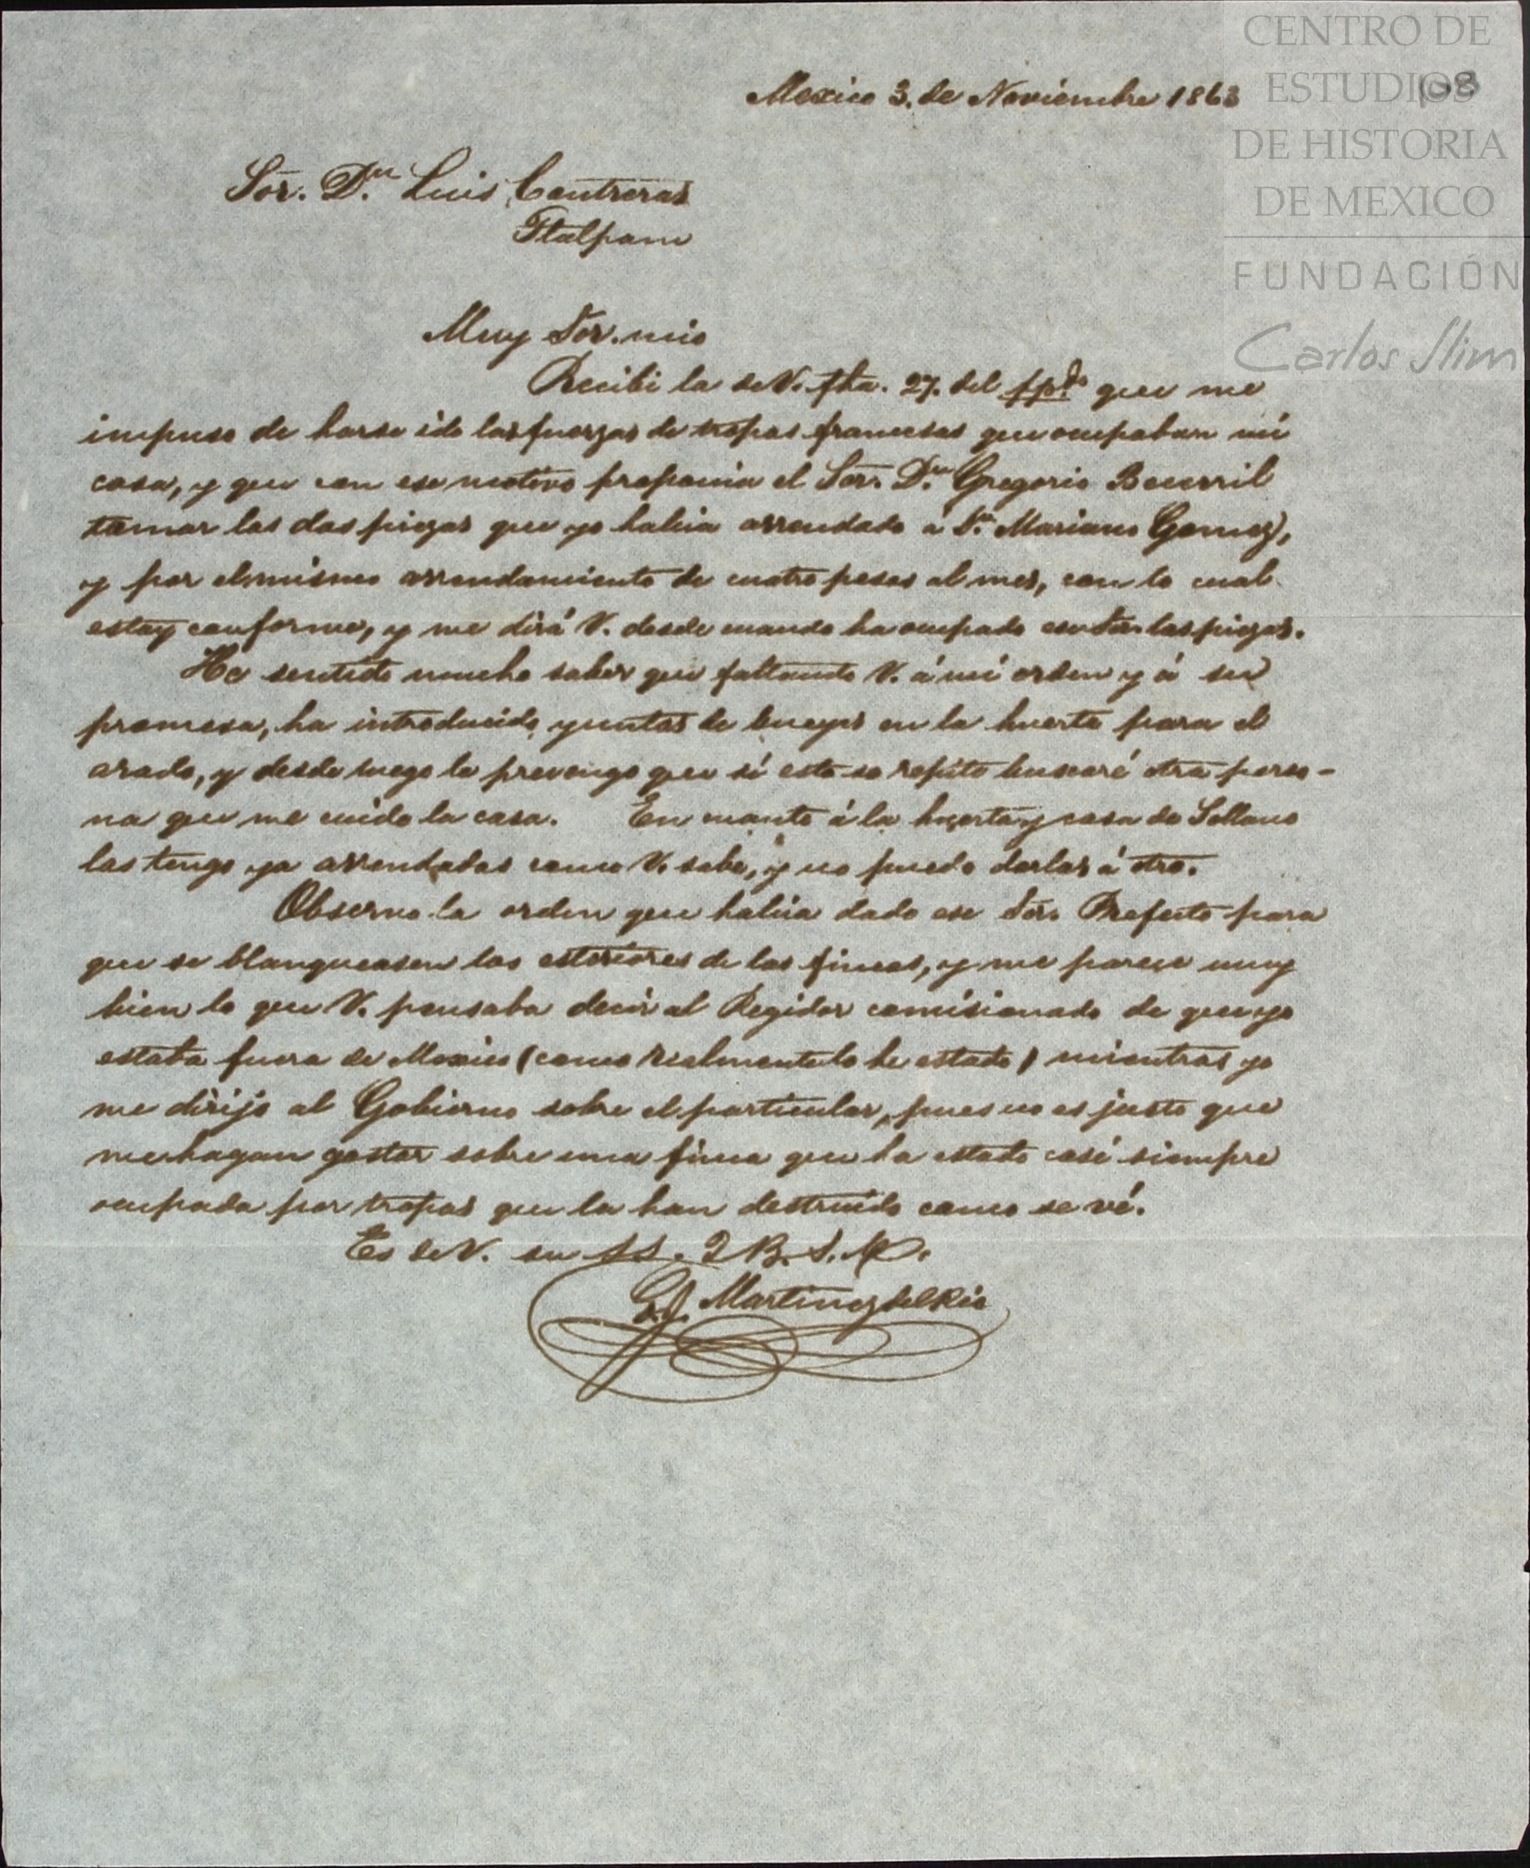 CENTRO DE
ESTUDIOS
DE HISTORIA
DE MEXICO
FUNDACIÓN
Carlos Slim
108
Mexico 3. de Noviembre 1863
Sor. Dn. Luis Contreras
Tlalpam
Muy Sor. mio
Recibi la de V. fha. 27. del ppdo. que me
impuso de harse ido las fuerzas de tropas francesas que ocupaban mi
casa, y que con ese motivo proponia el Sor. Dn. Gregorio Becerril
tomar las dos piezas que yo habia arrendado á Dn. Mariano Gomez,
y por el mismo arrendamiento de cuatro pesos al mes, con lo cual
estoy conforme, y me dirá V. desde cuando ha ocupado las piezas.
He sentido mucho saber que faltando V. á mi orden y á su
promesa, ha introducido yuntas de bueyes en la huerta para el
arado, y desde luego le prevengo que si esto se repite buscaré otra perso-
na que me cuide la casa. En cuanto á la huerta y casa de Sollano
las tengo ya arrendadas como V. sabe, y no puedo darlas á otro.
Observo la orden que habia dado ese Sor. Prefecto para
que se blanqueasen los esteriores de las fincas, y me parece muy
bien lo que V. pensaba decir al Regidor comisionado de que yo
estaba fuera de Mexico (como realmente lo he estado) mientras yo
me dirijo al Gobierno sobre el particular, pues no es justo que
me hagan gastar sobre una finca que ha estado casi siempre
ocupada por tropas que la han destruido como se vé.
Es de V. su S.S. Q B. S. M.
Martinez del Rio